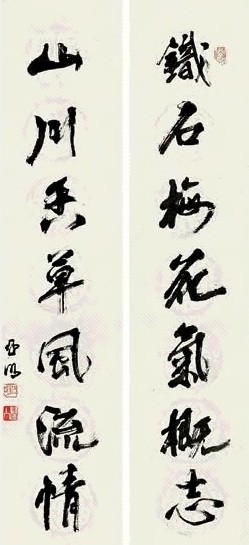 鐵石梅花氣概志
山川香草風流情
亚明